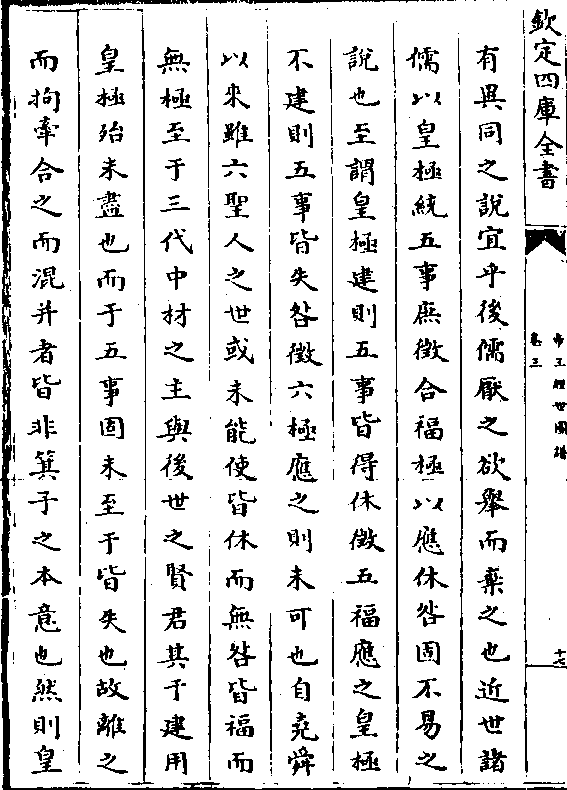 欽定四庫全書
帝王經世圖譜
卷三
十七
有異同之說宜乎後儒厭之欲舉而棄之也近世諸
儒以皇極統五事庶徵合福極以應休咎固不易之
說也至謂皇極建則五事皆得休徵五福應之皇極
不建則五事皆失咎徵六極應之則未可也自堯舜
以來雖六聖人之世或未能使皆休而無咎皆福而
無極至于三代中材之主與後世之賢君其于建用
皇極殆未盡也而于五事固未至于皆失也故離之
而拘牽合之而混并者皆非箕子之本意也然則皇